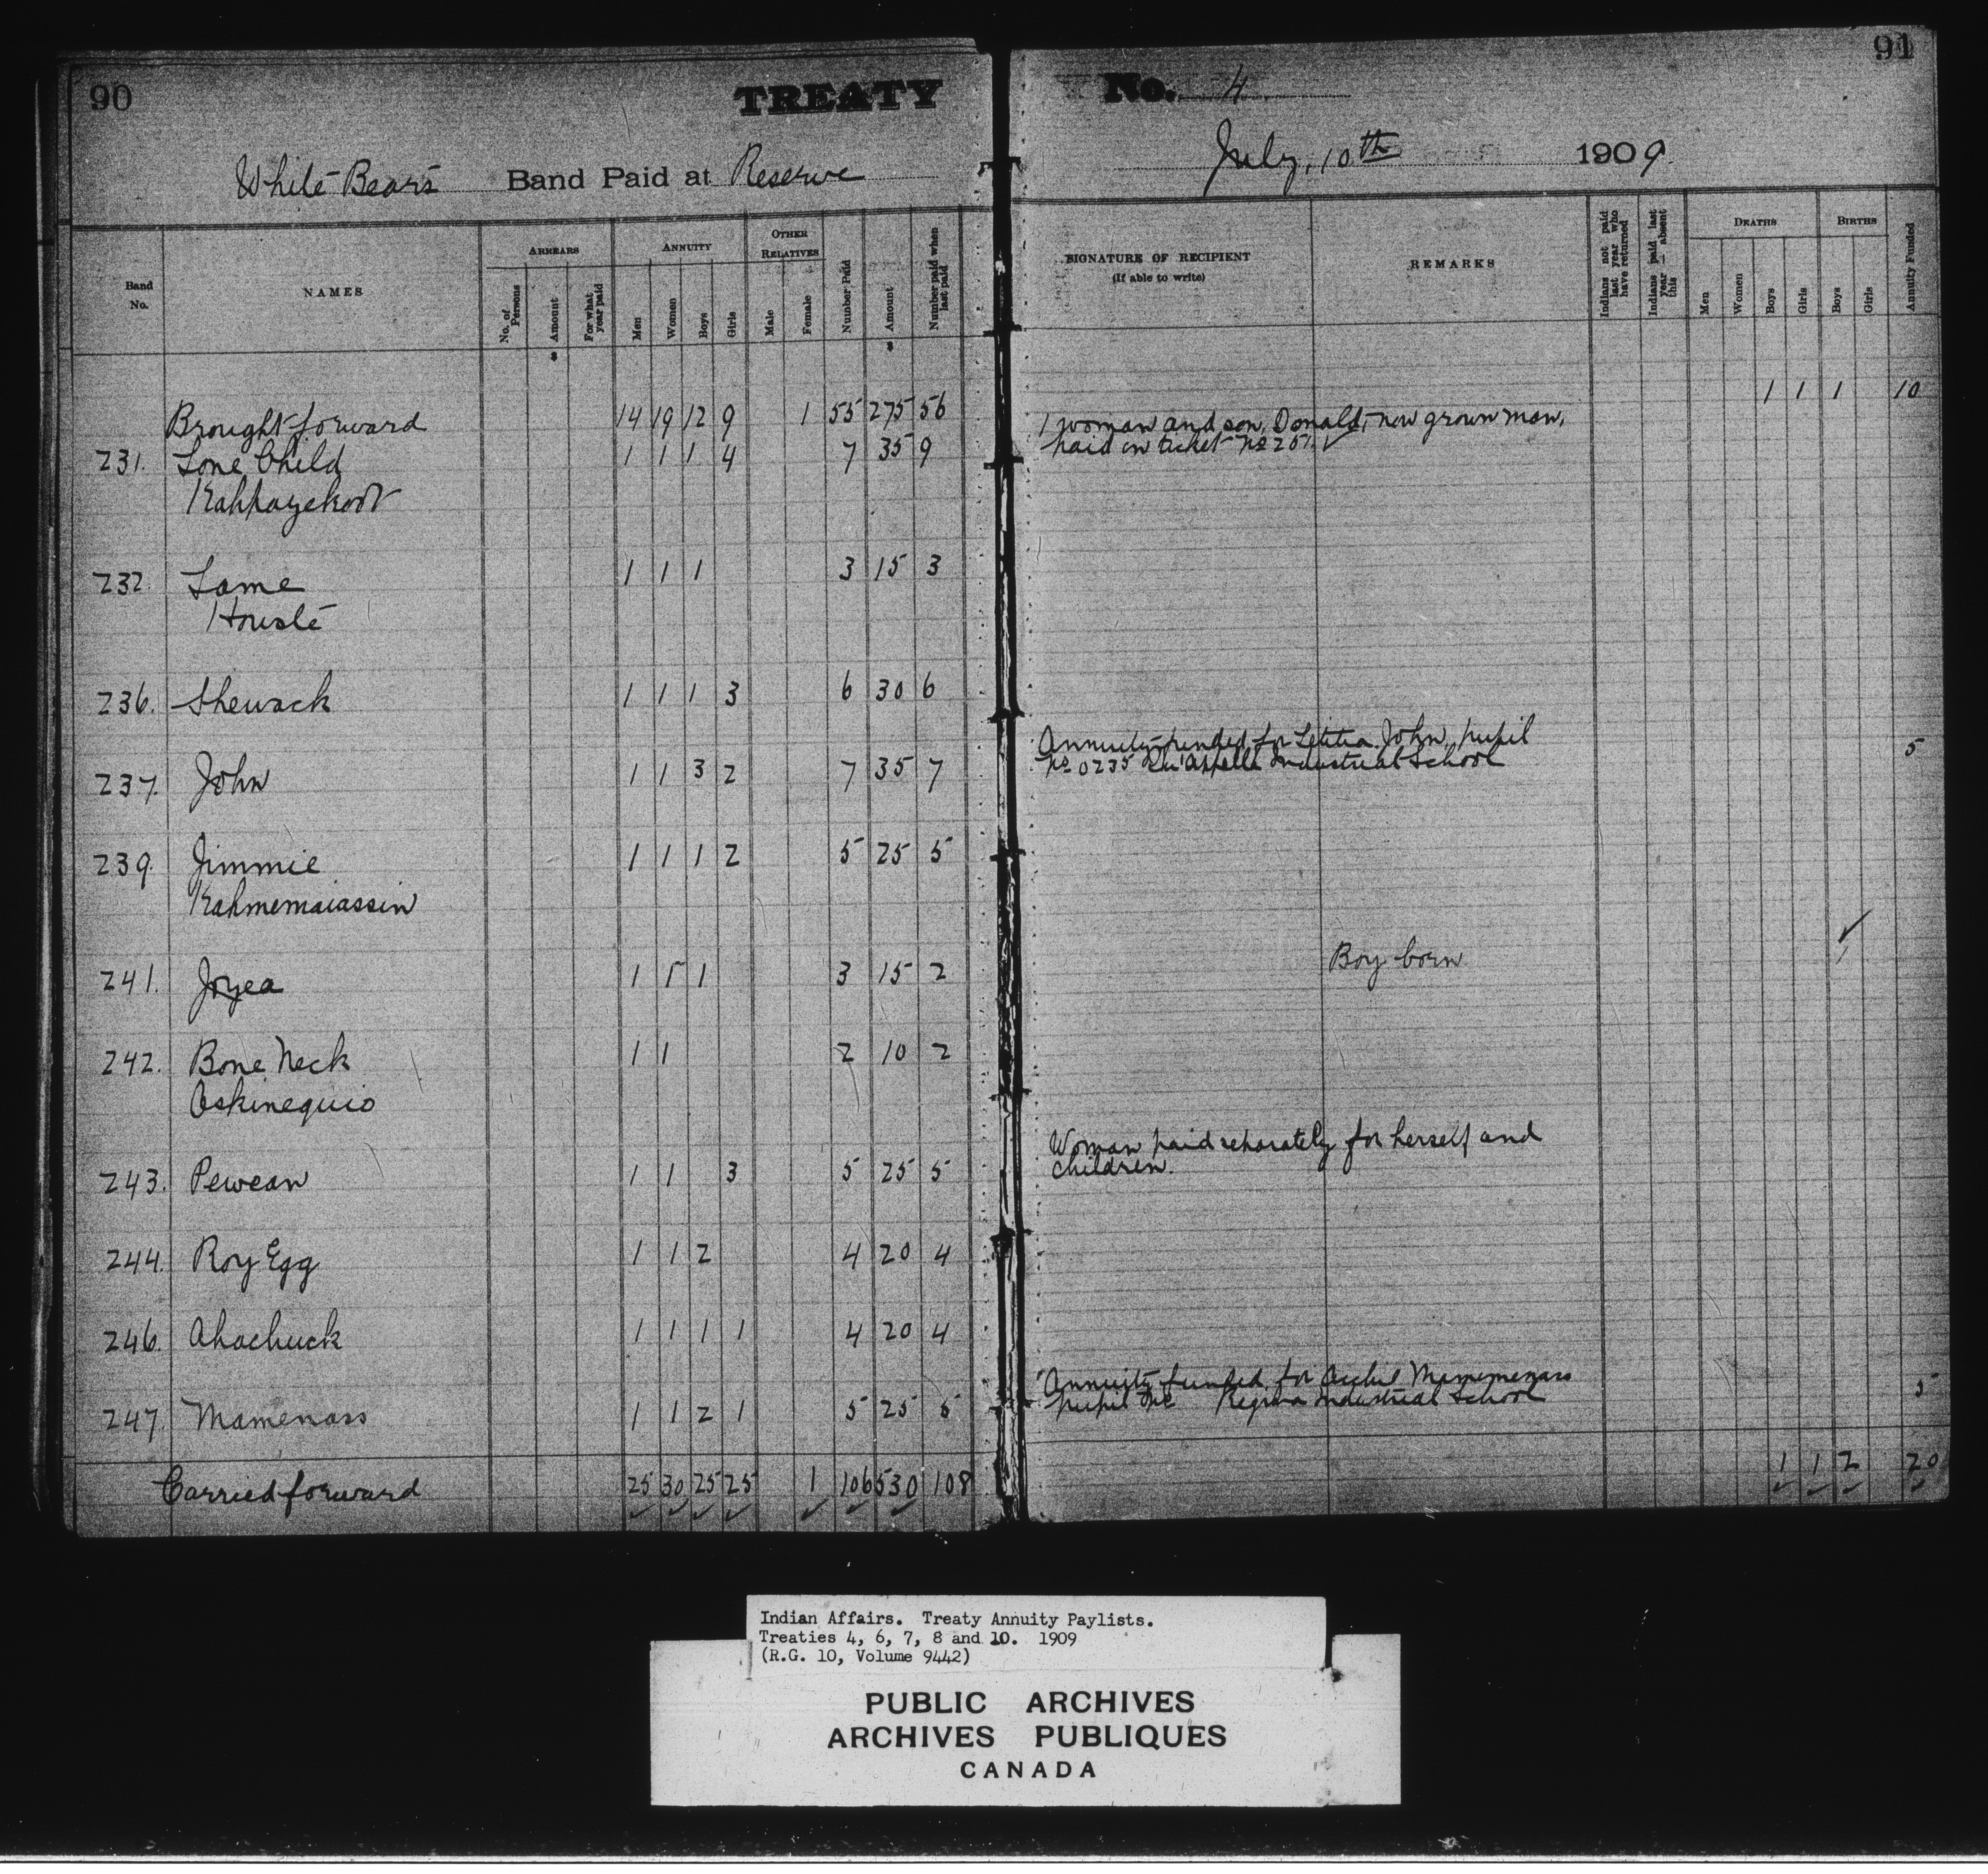 90
TREATY No. 4
91
White Bear's Band Paid at Reserve July, 10th 1909.
Band No.
NAMES
ARREARS
No. of Persons
Amount
For what year paid
ANNUITY
Men
Women
Boys
Girls
OTHER RELATIVES
Male
Female
Number Paid
Amount
Number paid when last paid
SIGNATURE OF RECIPIENT
(If able to write)
REMARKS
Indians not paid last year who have returned
Indians paid last year — absent this
DEATHS
Men
Women
Boys
Girls
BIRTHS
Boys
Girls
Annuity Funded
Brought forward 14 19 12 9 1 55 275 56 1 1 1 10
1 woman and son, Donald, now grown man,
231. Lone Child 1 1 1 4 7 35 9 paid on ticket No 251 ✓
Kahpayekoot
232. Lame 1 1 1 3 15 3
Houslé
236. Shewack 1 1 1 3 6 30 6
Annuity funded for Letitia John, pupil 5
237. John 1 1 3 2 7 35 7 No 0235 Qu'Appelle Industrial School
239. Jimmie 1 1 1 2 5 25 5
Kahmemaiassin
241. Joyea 1 1 1 3 15 2 Boy born ✓ 1
242. Bone Neck 1 1 2 10 2
Oskinequio
Woman paid separately for herself and
243. Pewean 1 1 3 5 25 5 children.
244. Roy Egg 1 1 2 4 20 4
246. Ahachuck 1 1 1 1 4 20 4
Annuity funded for Archie Mamemenass 5
247. Mamenass 1 1 2 1 5 25 5 pupil No Regina Industrial School
Carried forward 25 30 25 25 1 106 530 108 1 1 2 20
Indian Affairs. Treaty Annuity Paylists.
Treaties 4, 6, 7, 8 and 10. 1909
(R.G. 10, Volume 9442)
PUBLIC ARCHIVES
ARCHIVES PUBLIQUES
CANADA